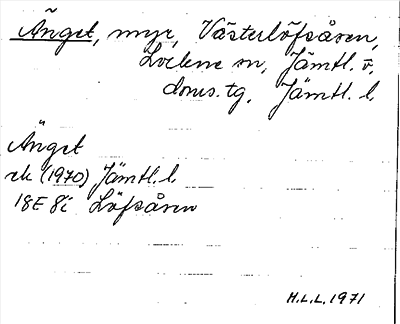 Änget, myr, Västerlöfsåsen,
Lockne sn, Jämtl. v.
doms. tg, Jämtl. l.
Änget
ek (1970) Jämtl. l.
18E 8i Löfsåsen
H.L.L. 1971